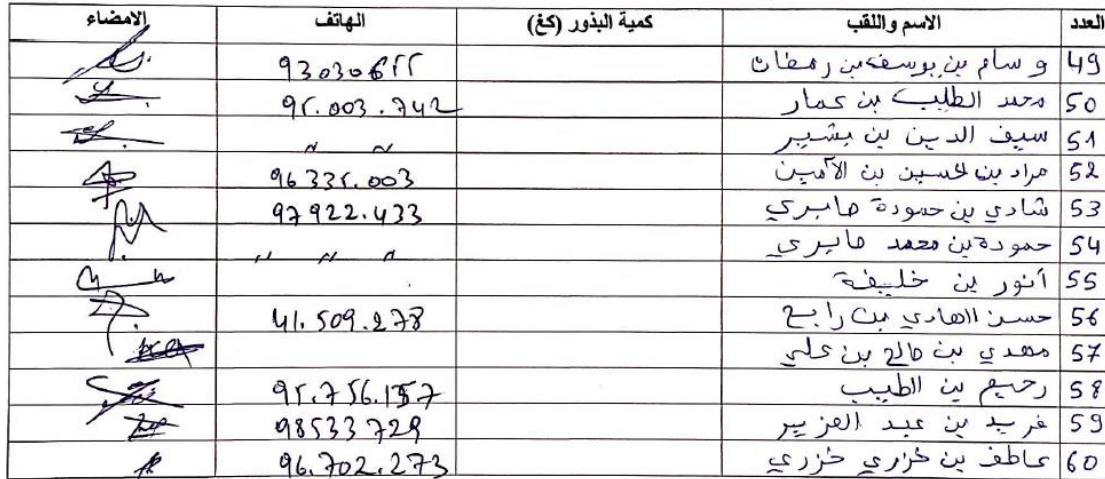 العدد الاسم واللقب كمية البذور (كغ) الهاتف الامضاء
49 وسام بن يوسف بن رمضان 93030655
50 محمد الطيب بن عمار 95.003.742
51 سيف الدين بن بشير " "
52 مراد بن لحسين بن الآمين 96335.003
53 شادي بن حمودة صابري 97922.433
54 حمودة بن محمد صابري " " "
55 آنور بن خليفة
56 حسن الهادي بن رابح 41.509.278
57 مهدي بن صالح بن علي
58 رحيم بن الطيب 95.756.157
59 فريد بن عبد العزيز 98533729
60 عاطف بن خزري خزري 96.702.273